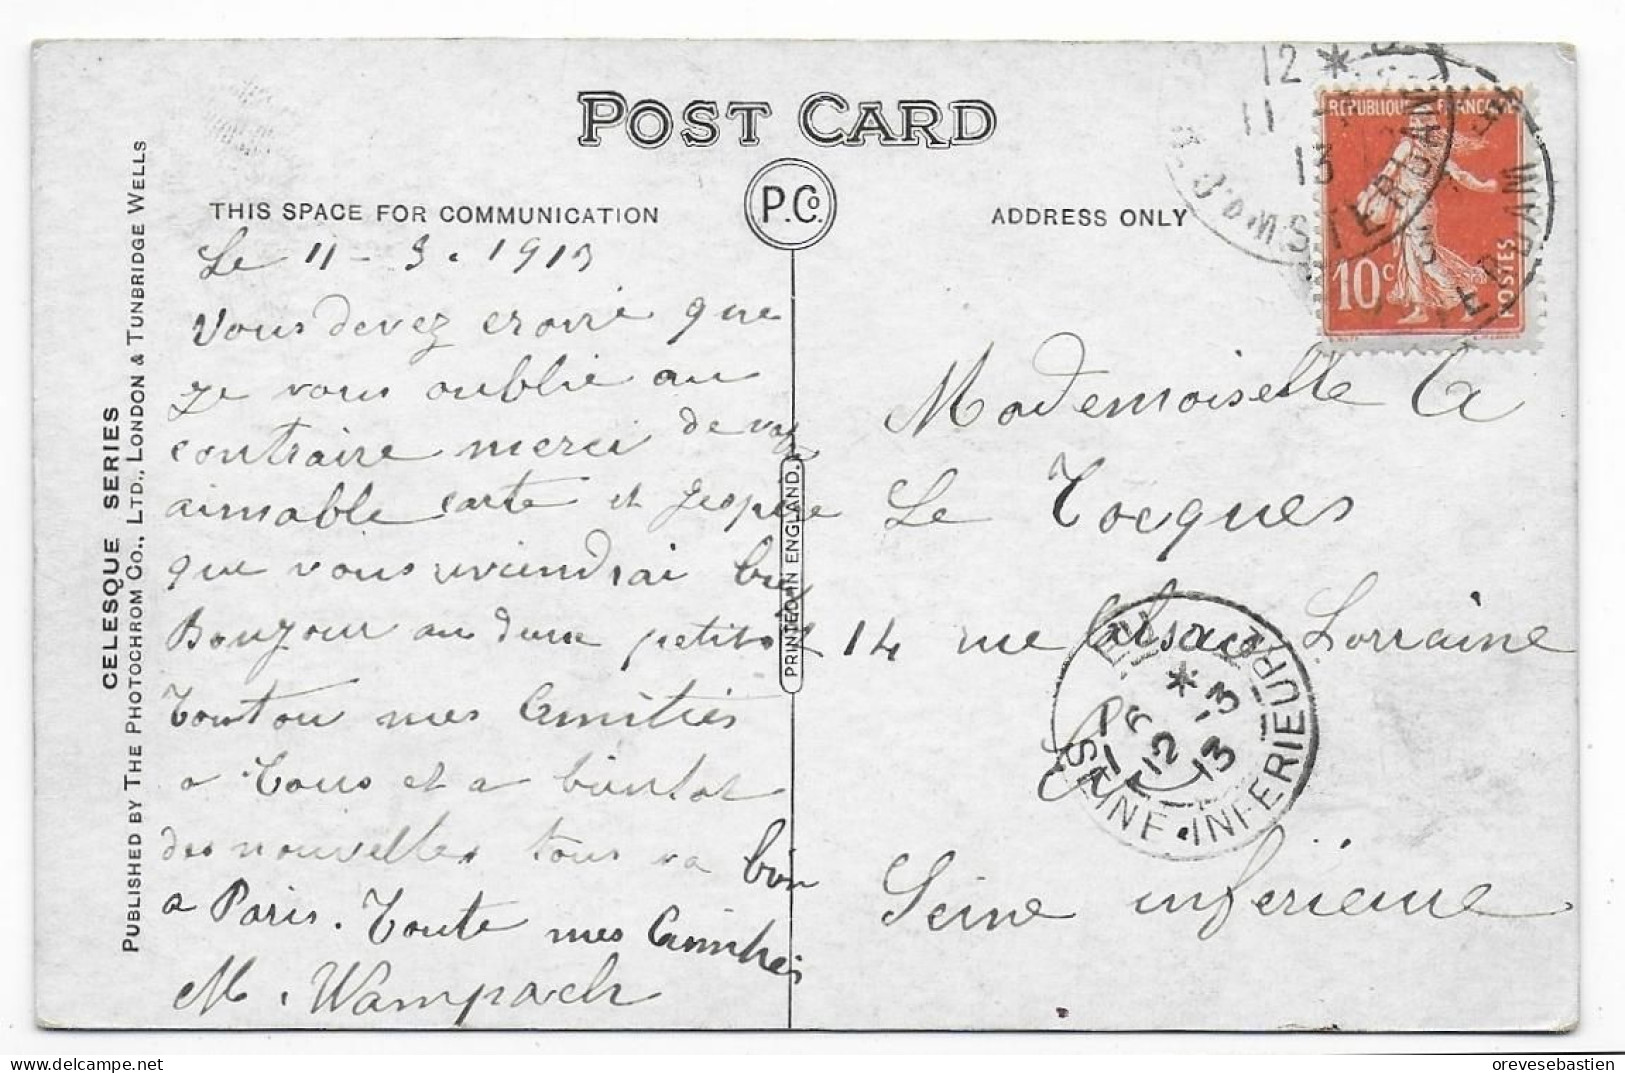 POST CARD
P.Co.
THIS SPACE FOR COMMUNICATION
ADDRESS ONLY
CELESQUE SERIES
PUBLISHED BY THE PHOTOCHROM CO., LTD., LONDON & TUNBRIDGE WELLS
PRINTED IN ENGLAND.
Le 11 - 3. 1913
Vous devez croire que
je vous oublie au
contraire merci de votre
aimable carte et jespere
que vous
Bonjour au petit
Toutou mes Amitiés
a Tous et a bientot
des nouvelles tous va bien
a Paris. Toute mes Amitiés
M. Wampach
Mademoiselle A
Le Tocques
14 rue Alsace Lorraine
Eu
Seine inferieure
REPUBLIQUE FRANCAISE
10c
POSTES
12 *
11
13
R. D'AMSTERDAM
EU
6 *
12 -3
13
SEINE-INFERIEURE
orevesebastien